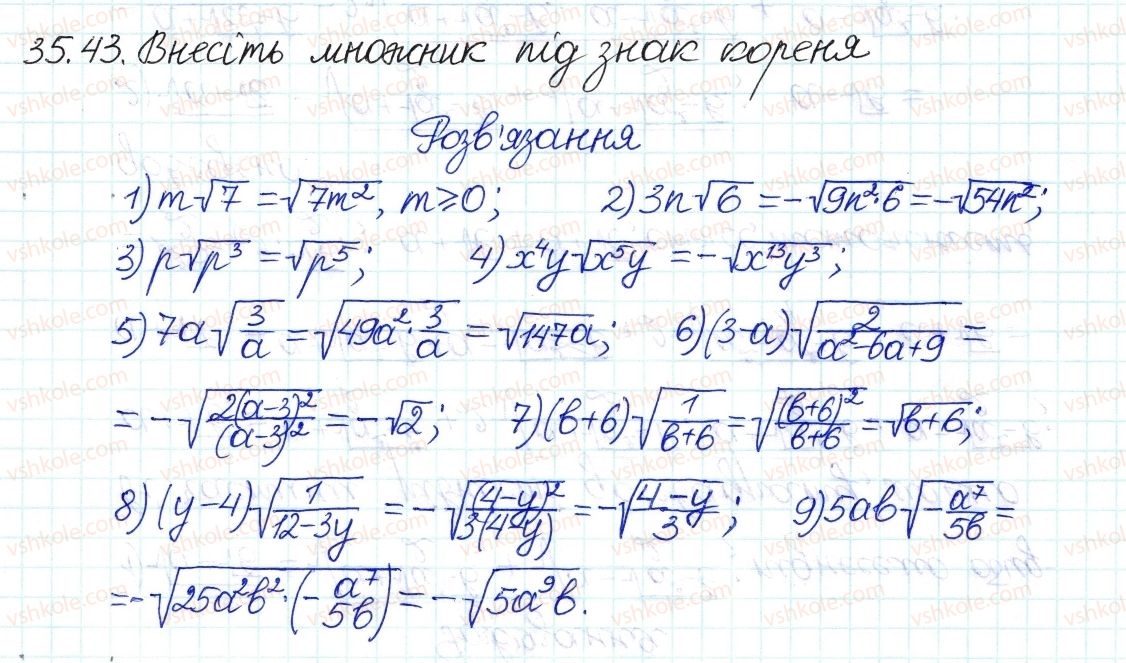 35.43. Внесіть множник під знак кореня
Розв'язання
1) m√7 = √7m², m⩾0; 2) 3n√6 = -√9n²·6 = -√54n²;
3) p√p³ = √p⁵; 4) x⁴y√x⁵y = -√x¹³y³;
5) 7a√(3/a) = √(49a²·3/a) = √147a; 6) (3-a)√(2/(a²-6a+9)) =
= -√(2(a-3)²/(a-3)²) = -√2; 7) (в+6)√(1/(в+6)) = √((в+6)²/(в+6)) = √в+6;
8) (y-4)√(1/(12-3y)) = -√((4-y)²/3(4-y)) = -√((4-y)/3); 9) 5aв√(-a⁷/5в) =
= -√(25a²в²·(-a⁷/5в)) = -√5a⁹в.